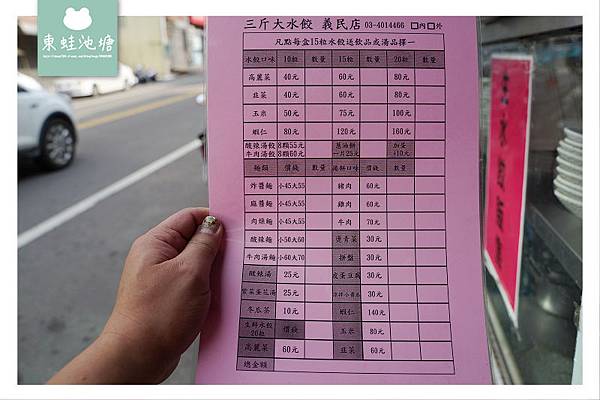 東蛙池塘
三斤大水餃 義民店 03-4014466 □內□外
凡點每盒15粒水餃送飲品或湯品擇一
水餃口味 10粒 數量 15粒 數量 20粒 數量
高麗菜 40元 60元 80元
韭菜 40元 60元 80元
玉米 50元 75元 100元
蝦仁 80元 120元 160元
酸辣湯餃 8顆55元 蔥油餅 加蛋
牛肉湯餃 8顆60元 一片25元 +10元
麵類 價錢 數量 湯餅口味 價錢 數量
炸醬麵 小45大55 豬肉 60元
麻醬麵 小45大55 雞肉 60元
肉絲麵 小45大55 牛肉 70元
酸辣麵 小50大60 燙青菜 30元
牛肉湯麵 小60大70 拼盤 30元
酸辣湯 25元 皮蛋豆腐 30元
紫菜蛋花湯 25元 30元
冬瓜茶 10元 蝦仁 140元
生鮮水餃 價錢 玉米 80元
20粒
高麗菜 60元 韭菜 60元
總金額